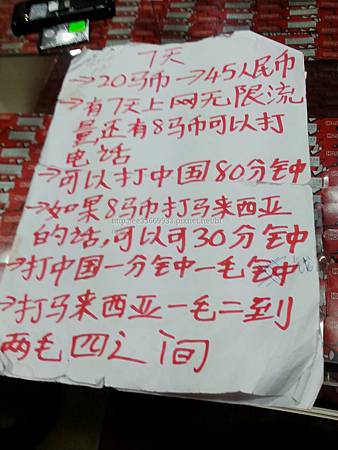 7天
→20马币→45人民币
→有7天上网无限流
量还有8马币可以打
电话
→可以打中国80分钟
→如果8马币打马来西亚
的话,可以可30分钟
→打中国一分钟一毛钟
→打马来西亚一毛二到
两毛四之间